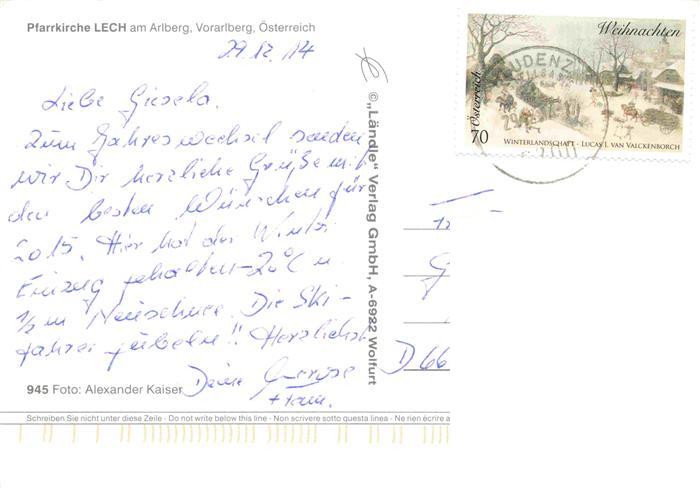 Pfarrkirche LECH am Arlberg, Vorarlberg, Österreich
29.12.14
Liebe Gisela.
Zum Jahreswechsel senden
wir Dir herzliche Grüße mit
den besten Wünschen für
2015. Hier hat der Winter
Einzug gehalten -20°C u.
1/2 m Neuschnee. Die Ski-
fahrer jubeln!! Herzlichst
Deine
945 Foto: Alexander Kaiser
Schreiben Sie nicht unter diese Zeile - Do not write below this line - Non scrivere sotto questa linea - Ne rien écrire a
©„Ländle" Verlag GmbH, A-6922 Wolfurt
Weihnachten
Österreich
70
WINTERLANDSCHAFT - LUCAS I. VAN VALCKENBORCH
UDENZ
D 66